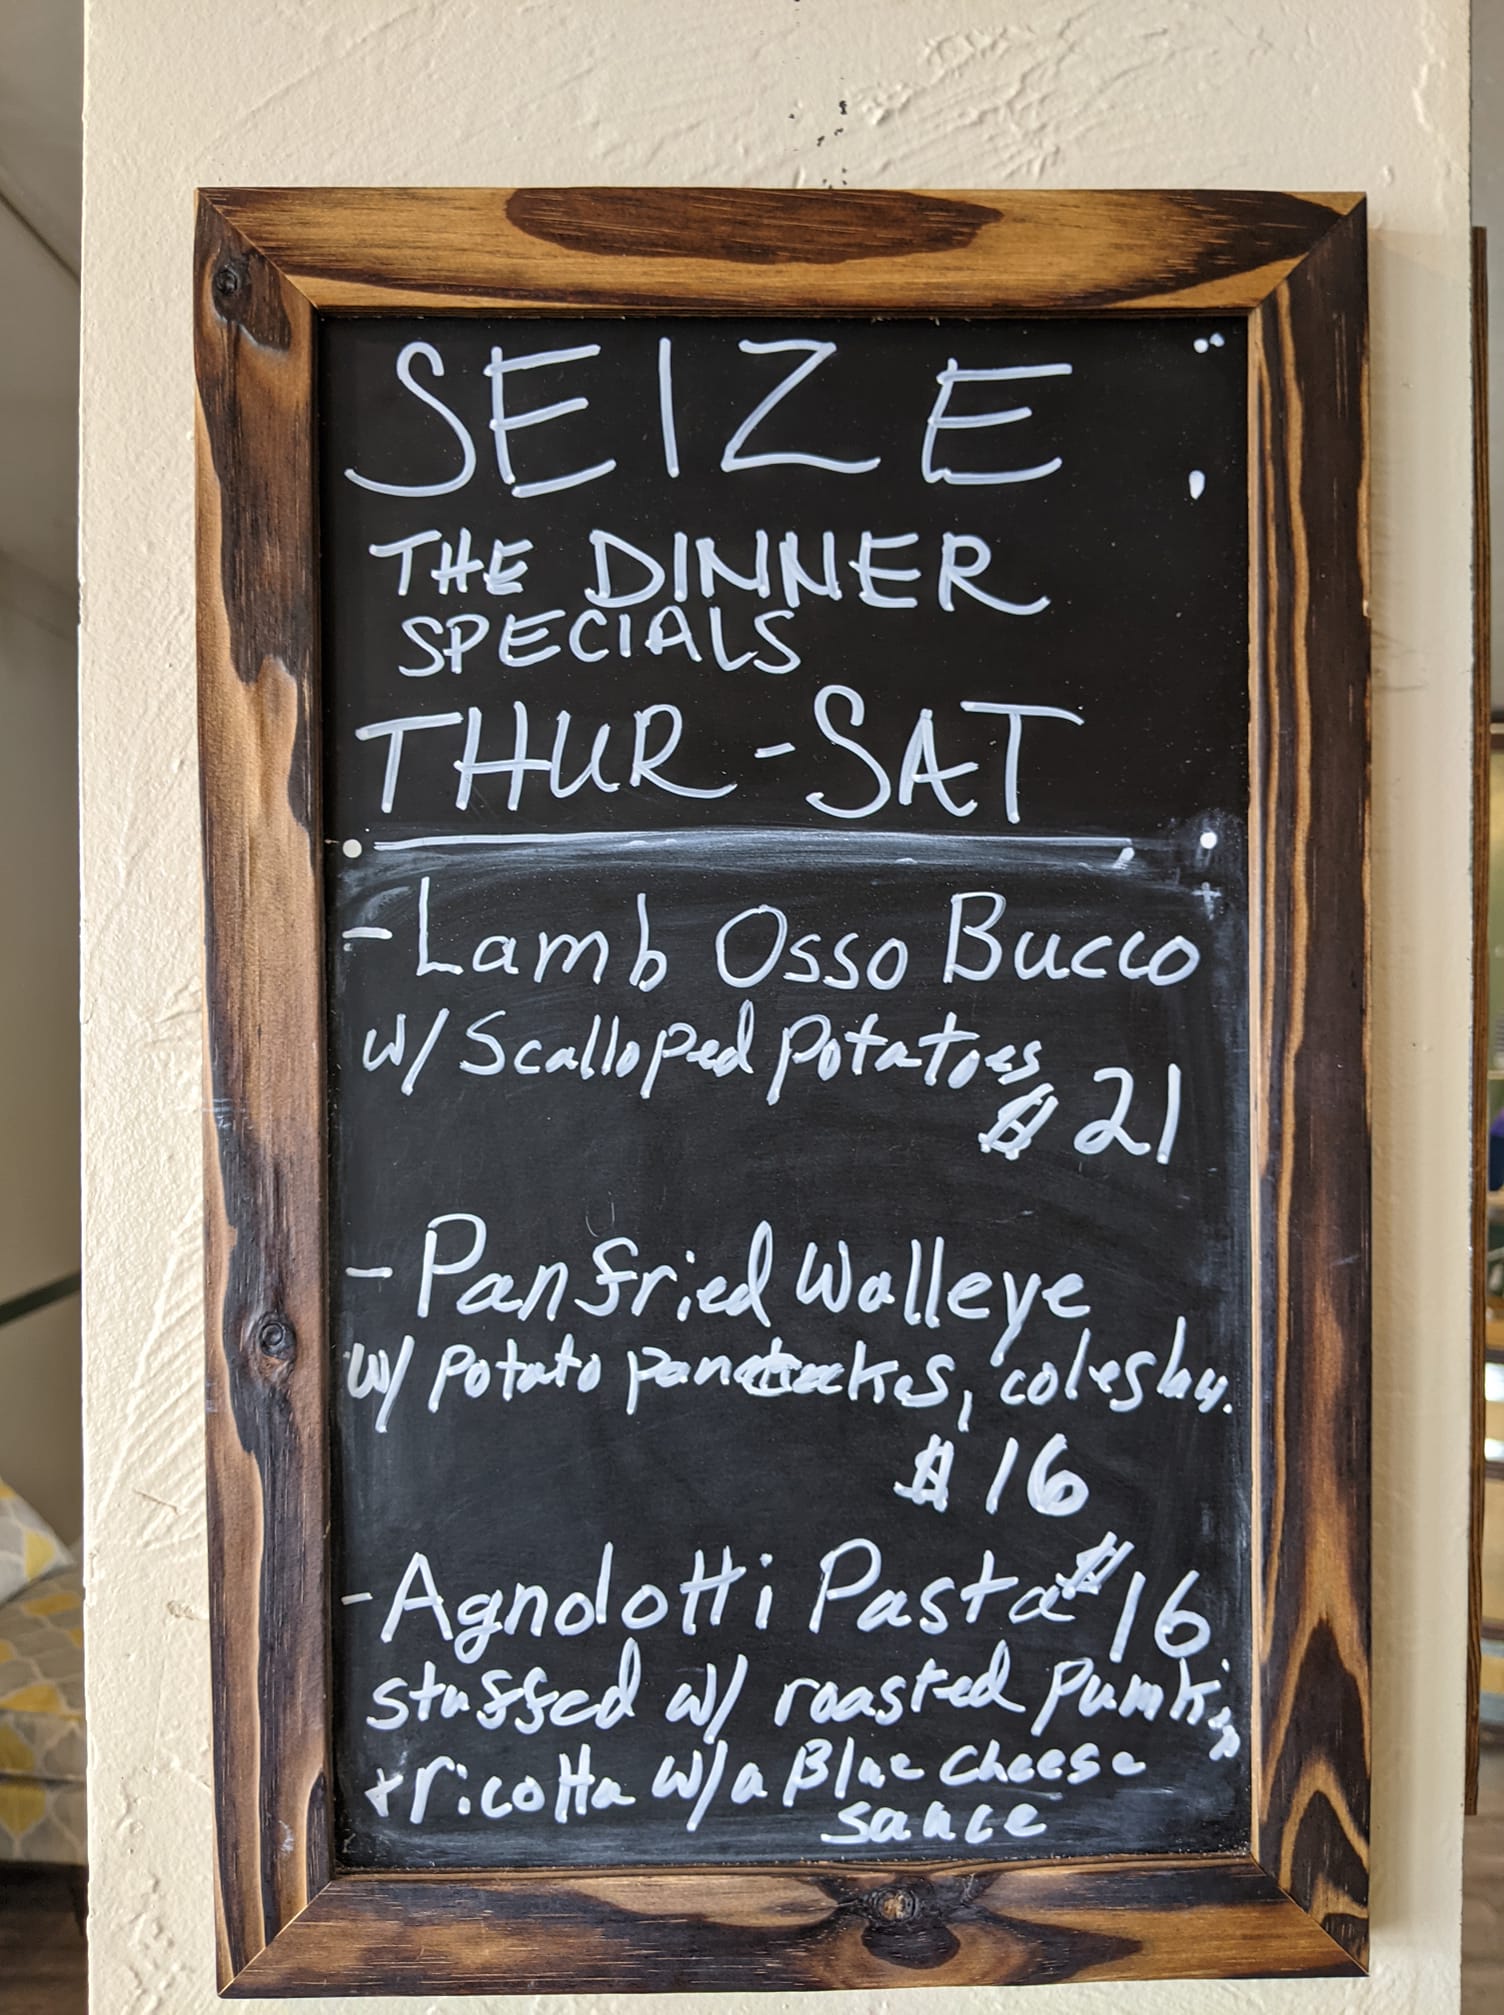 SEIZE
THE DINNER
SPECIALS
THUR-SAT
- Lamb Osso Bucco
w/ Scalloped potatoes
$21
- Panfried Walleye
w/ potato pancakes, coleslaw.
$16
- Agnolotti Pasta $16
stuffed w/ roasted pumkin
+ ricotta w/a Blue cheese
sauce